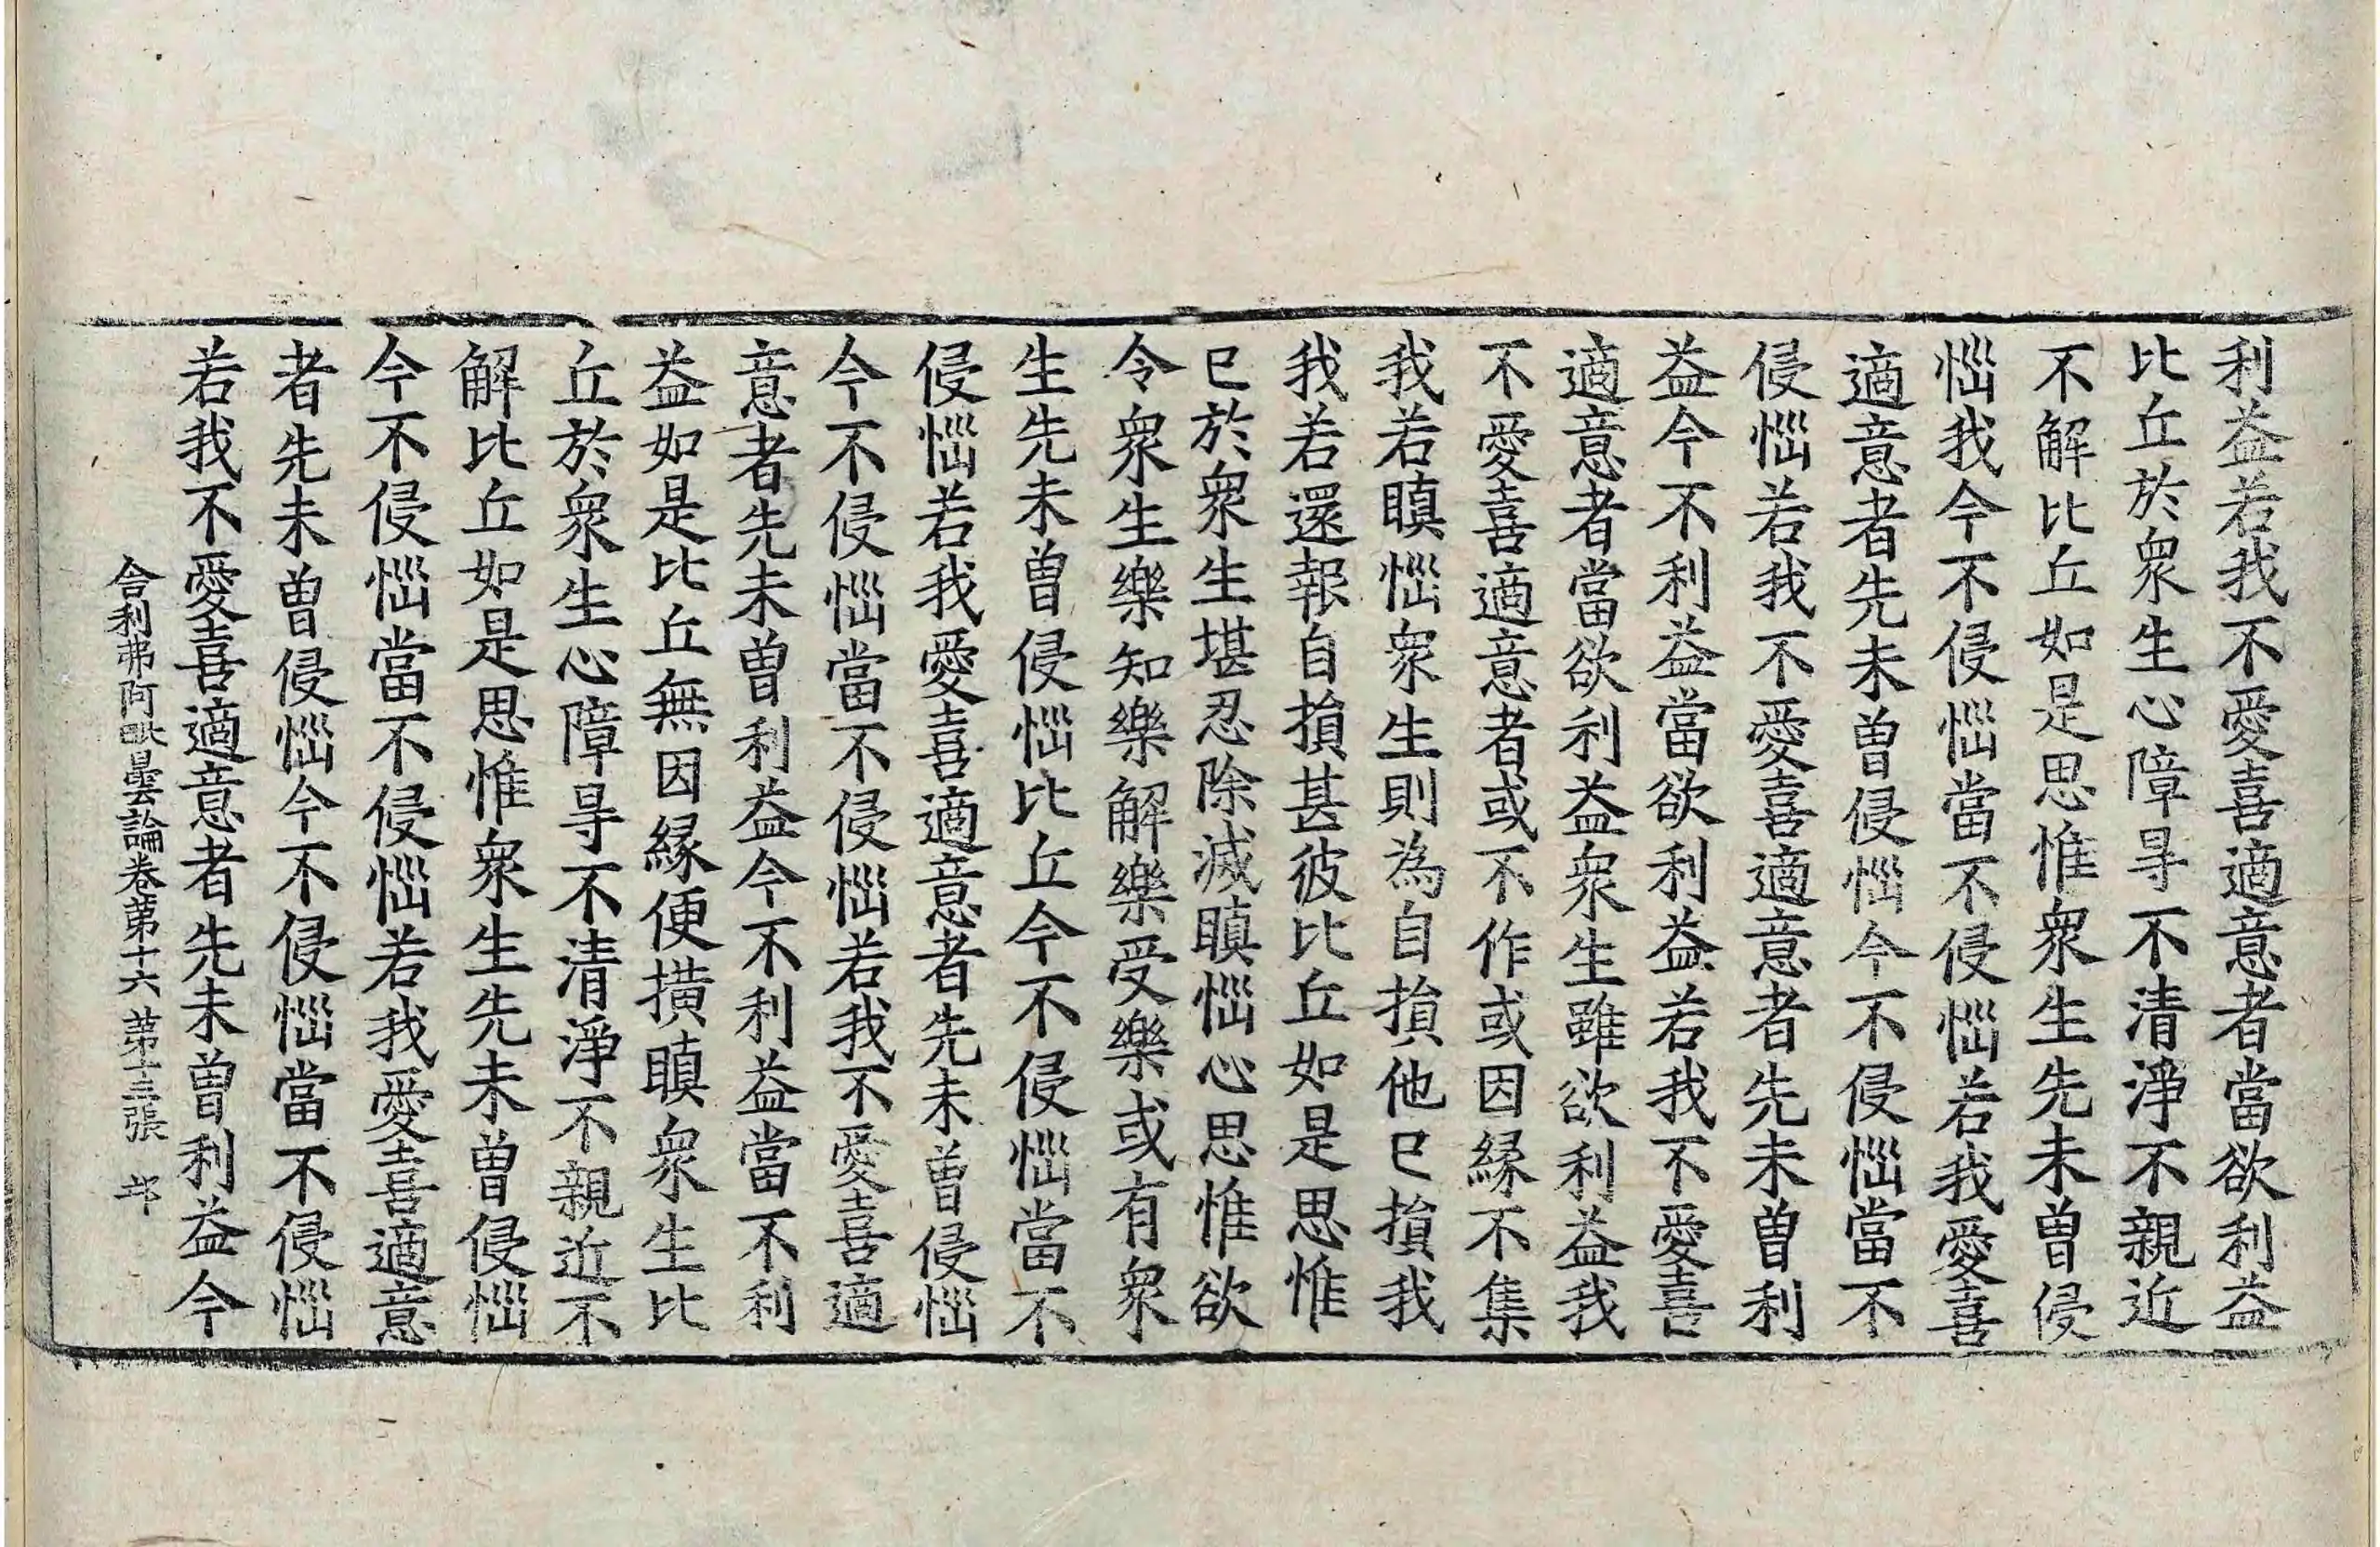 利益若我不愛喜適意者當欲利益
比丘於衆生心障㝵不清淨不親近
不解比丘如是思惟衆生先未曾侵
惱我今不侵惱當不侵惱若我愛喜
適意者先未曾侵惱今不侵惱當不
侵惱若我不愛喜適意者先未曾利
益今不利益當欲利益若我不愛喜
適意者當欲利益衆生雖欲利益我
不愛喜適意者或不作或因緣不集
我若瞋惱衆生則為自損他已損我
我若還報自損甚彼比丘如是思惟
已於衆生堪忍除滅瞋惱心思惟欲
令衆生樂知樂解樂受樂或有衆
生先未曾侵惱比丘今不侵惱當不
侵惱若我愛喜適意者先未曾侵惱
今不侵惱當不侵惱若我不愛喜適
意者先未曾利益今不利益當不利
益如是比丘無因緣便擴瞋衆生比
丘於衆生心障㝵不清淨不親近不
解比丘如是思惟衆生先未曾侵惱
今不侵惱當不侵惱若我愛喜適意
者先未曾侵惱今不侵惱當不侵惱
若我不愛喜適意者先未曾利益今
舍利弗阿毗曇論卷第十六 第十三張